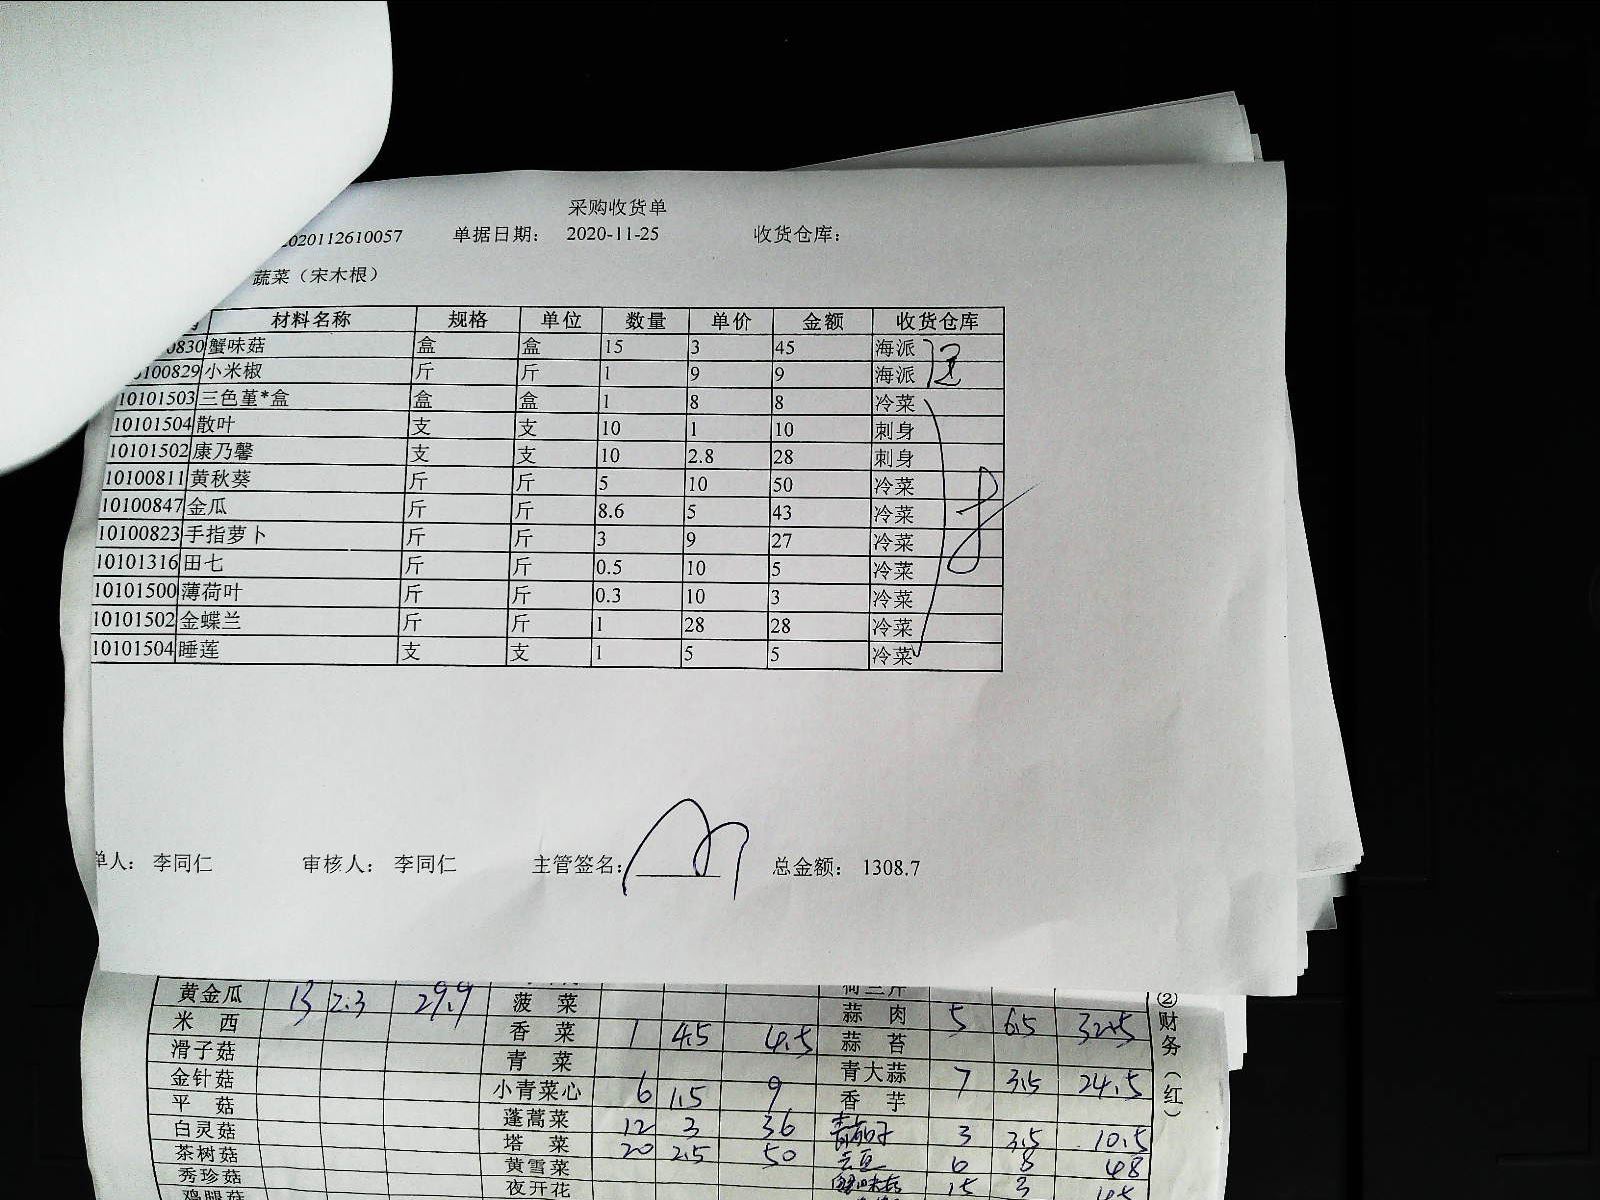 采购收货单
2020112610057 单据日期： 2020-11-25 收货仓库：
蔬菜（宋木根）
材料名称 规格 单位 数量 单价 金额 收货仓库
0830 蟹味菇 盒 盒 15 3 45 海派
100829 小米椒 斤 斤 1 9 9 海派
10101503 三色堇*盒 盒 盒 1 8 8 冷菜
10101504 散叶 支 支 10 1 10 刺身
10101502 康乃馨 支 支 10 2.8 28 刺身
10100811 黄秋葵 斤 斤 5 10 50 冷菜
10100847 金瓜 斤 斤 8.6 5 43 冷菜
10100823 手指萝卜 斤 斤 3 9 27 冷菜
10101316 田七 斤 斤 0.5 10 5 冷菜
10101500 薄荷叶 斤 斤 0.3 10 3 冷菜
10101502 金蝶兰 斤 斤 1 28 28 冷菜
10101504 睡莲 支 支 1 5 5 冷菜
单人： 李同仁 审核人： 李同仁 主管签名： 总金额： 1308.7
黄金瓜 13 2.3 29.9 菠菜
米西 香菜 1 4.5 4.5 蒜肉 5 6.5 32.5
滑子菇 青菜 蒜苔
金针菇 小青菜心 6 1.5 9 青大蒜 7 3.5 24.5
平菇 蓬蒿菜 12 3 36 香芋
白灵菇 塔菜 20 2.5 50 青茄子 3 3.5 10.5
茶树菇 黄雪菜 6 8 48
秀珍菇 夜开花 蟹味菇 15 3 45
鸡腿菇
②财务（红）